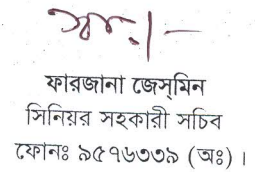 স্বাঃ।-
ফারজানা জেস্‌মিন
সিনিয়র সহকারী সচিব
ফোনঃ ৯৫৭৬৩৩৯ (অঃ)।